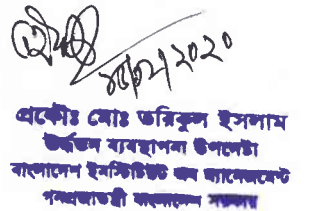 প্রকৌঃ মোঃ তরিকুল ইসলাম
উর্দ্ধতন ব্যবস্থাপনা উপদেষ্টা
বাংলাদেশ ইনস্টিটিউট অব ম্যানেজমেন্ট
গনপ্রজাতন্ত্রী বাংলাদেশ সরকার